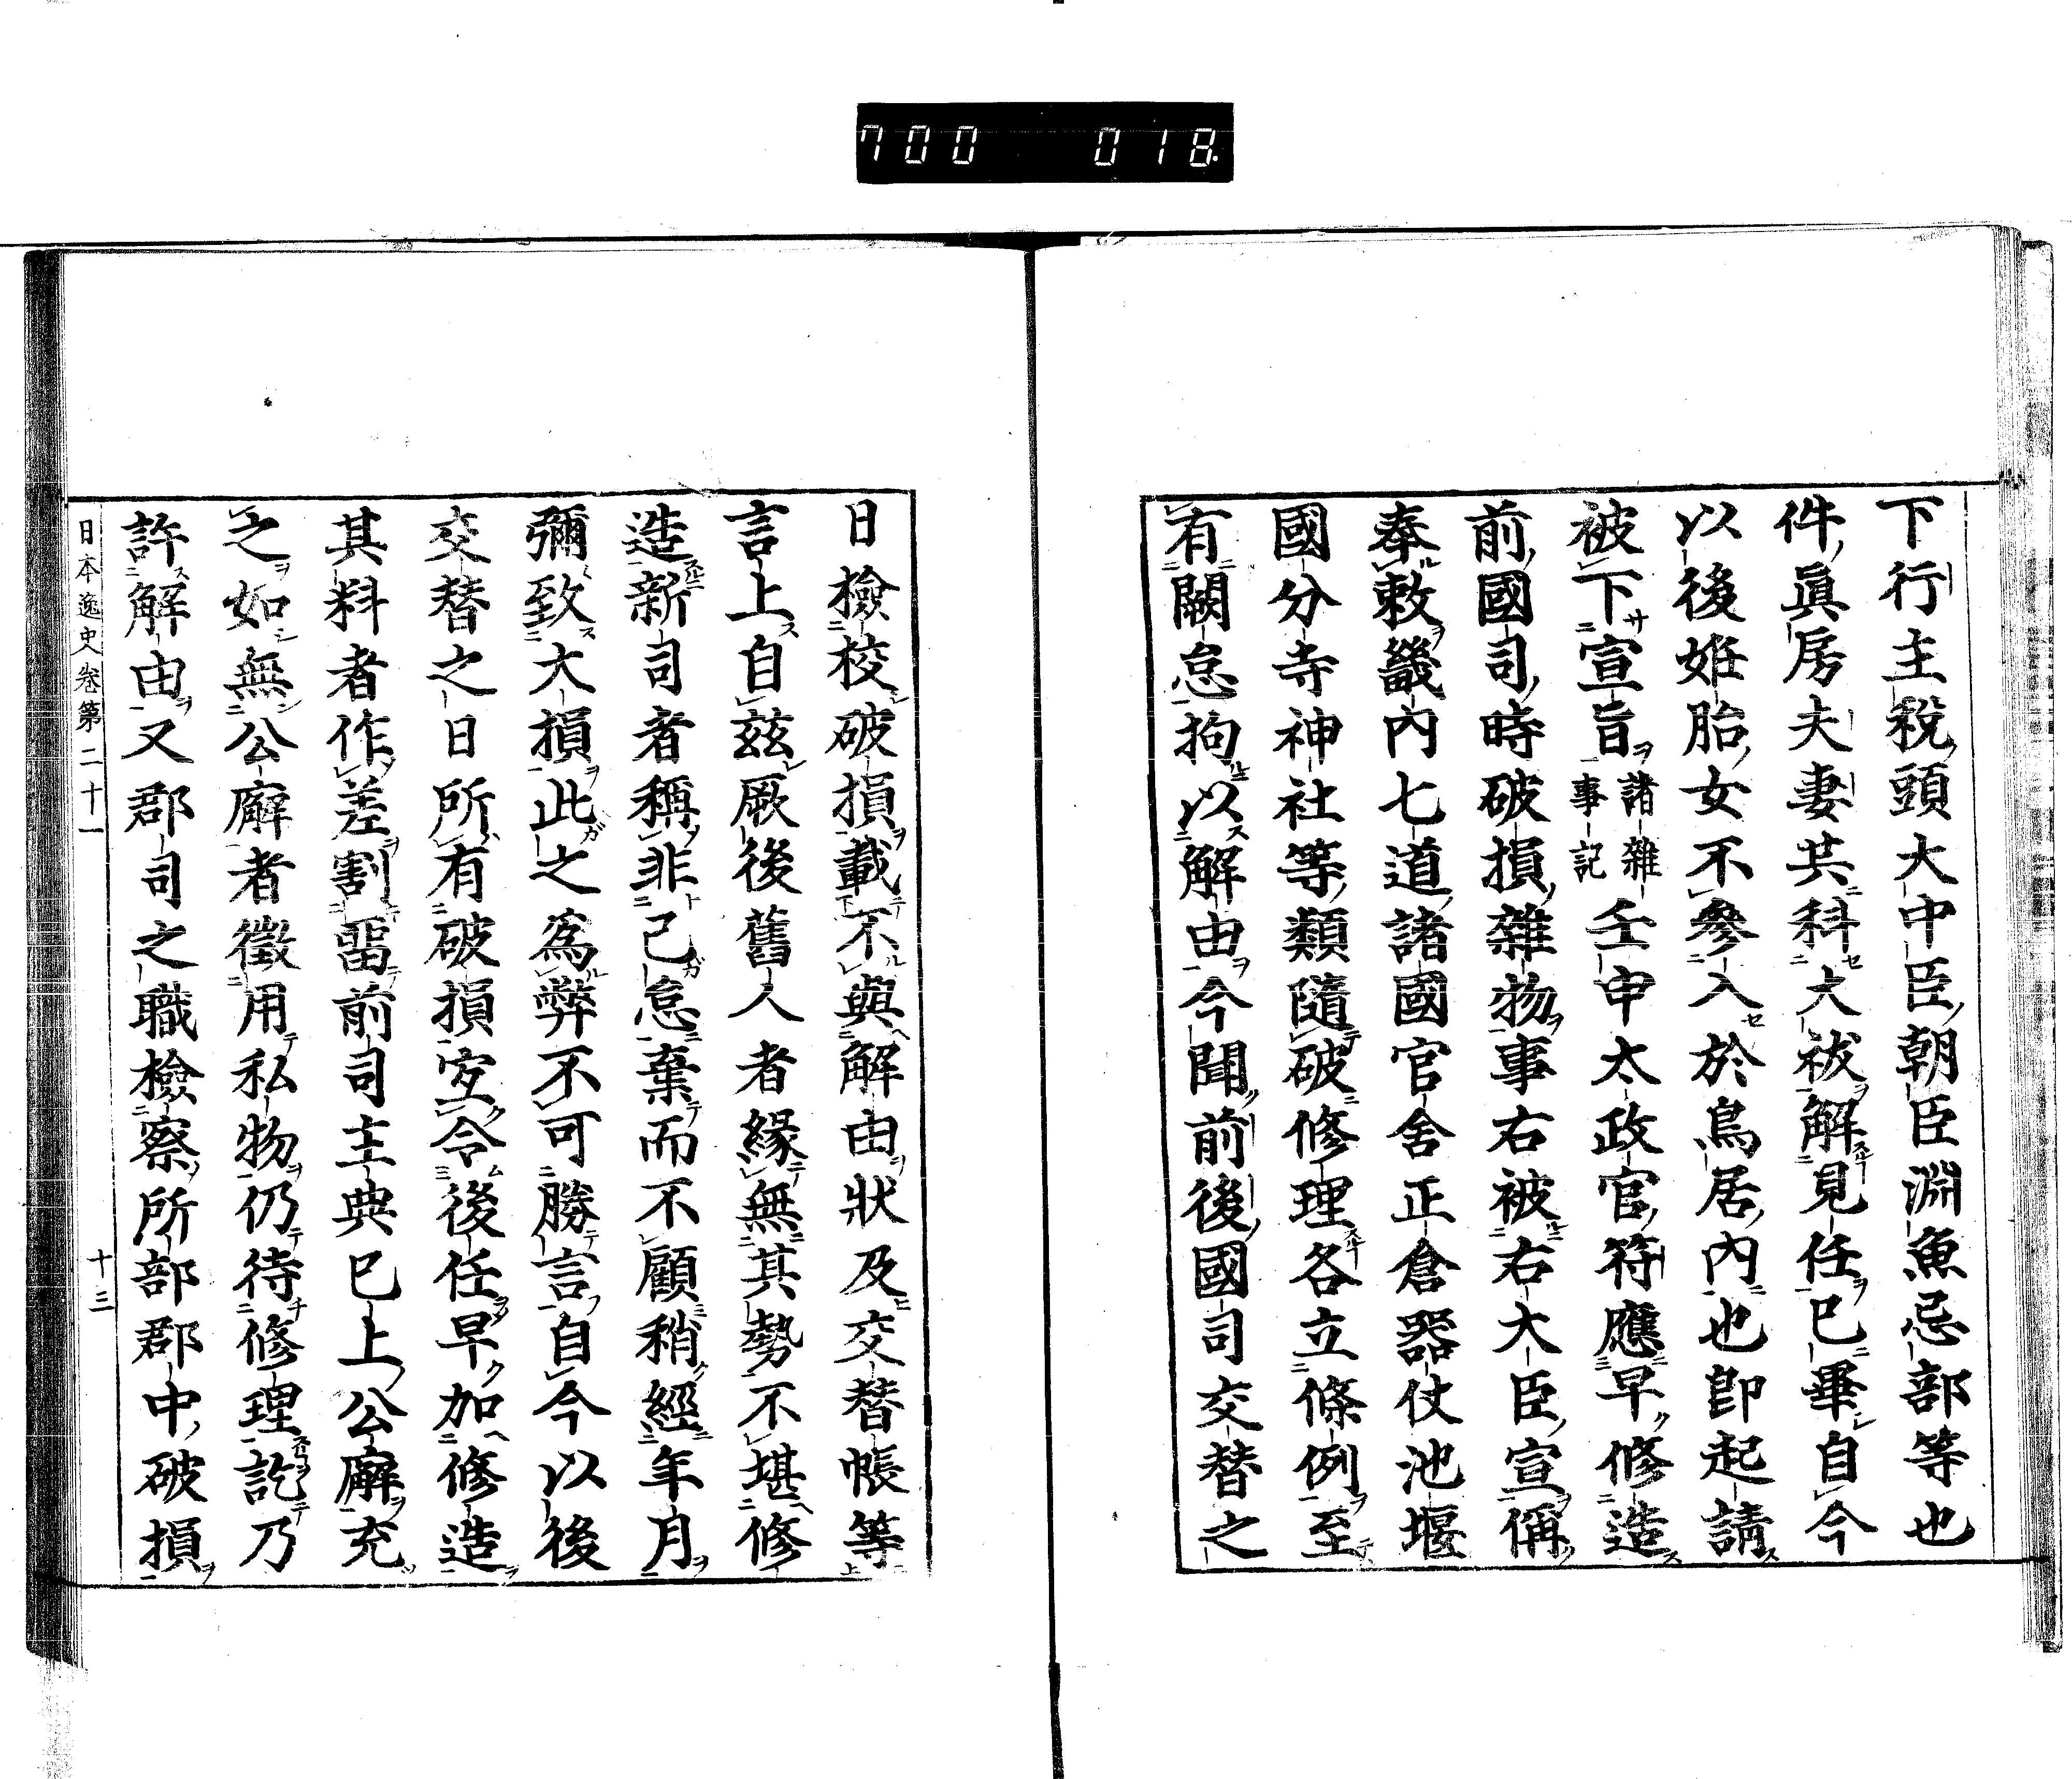 700 018
下行主稅頭大中臣朝臣淵魚忌部等也
件眞房夫妻共科大祓解見任已畢自今
以後姙胎女不參入於鳥居內也卽起請
被下宣旨諸雜事記壬申太政官符應早修造
前國司時破損雜物事右被右大臣宣稱
奉敕畿內七道諸國官舍正倉器仗池堰
國分寺神社等類隨破修理各立條例至
有闕怠拘以解由今聞前後國司交替之
日檢校破損載不與解由狀及交替帳等
言上自玆厥後舊人者緣無其勢不堪修
造新司者稱非己怠棄而不顧稍經年月
彌致大損此之爲弊不可勝言自今以後
交替之日所有破損宐令後任早加修造
其料者作差割留前司主典已上公廨充
之如無公廨者徵用私物仍待修理訖乃
許解由又郡司之職檢察所部郡中破損
日本逸史卷第二十一 十三